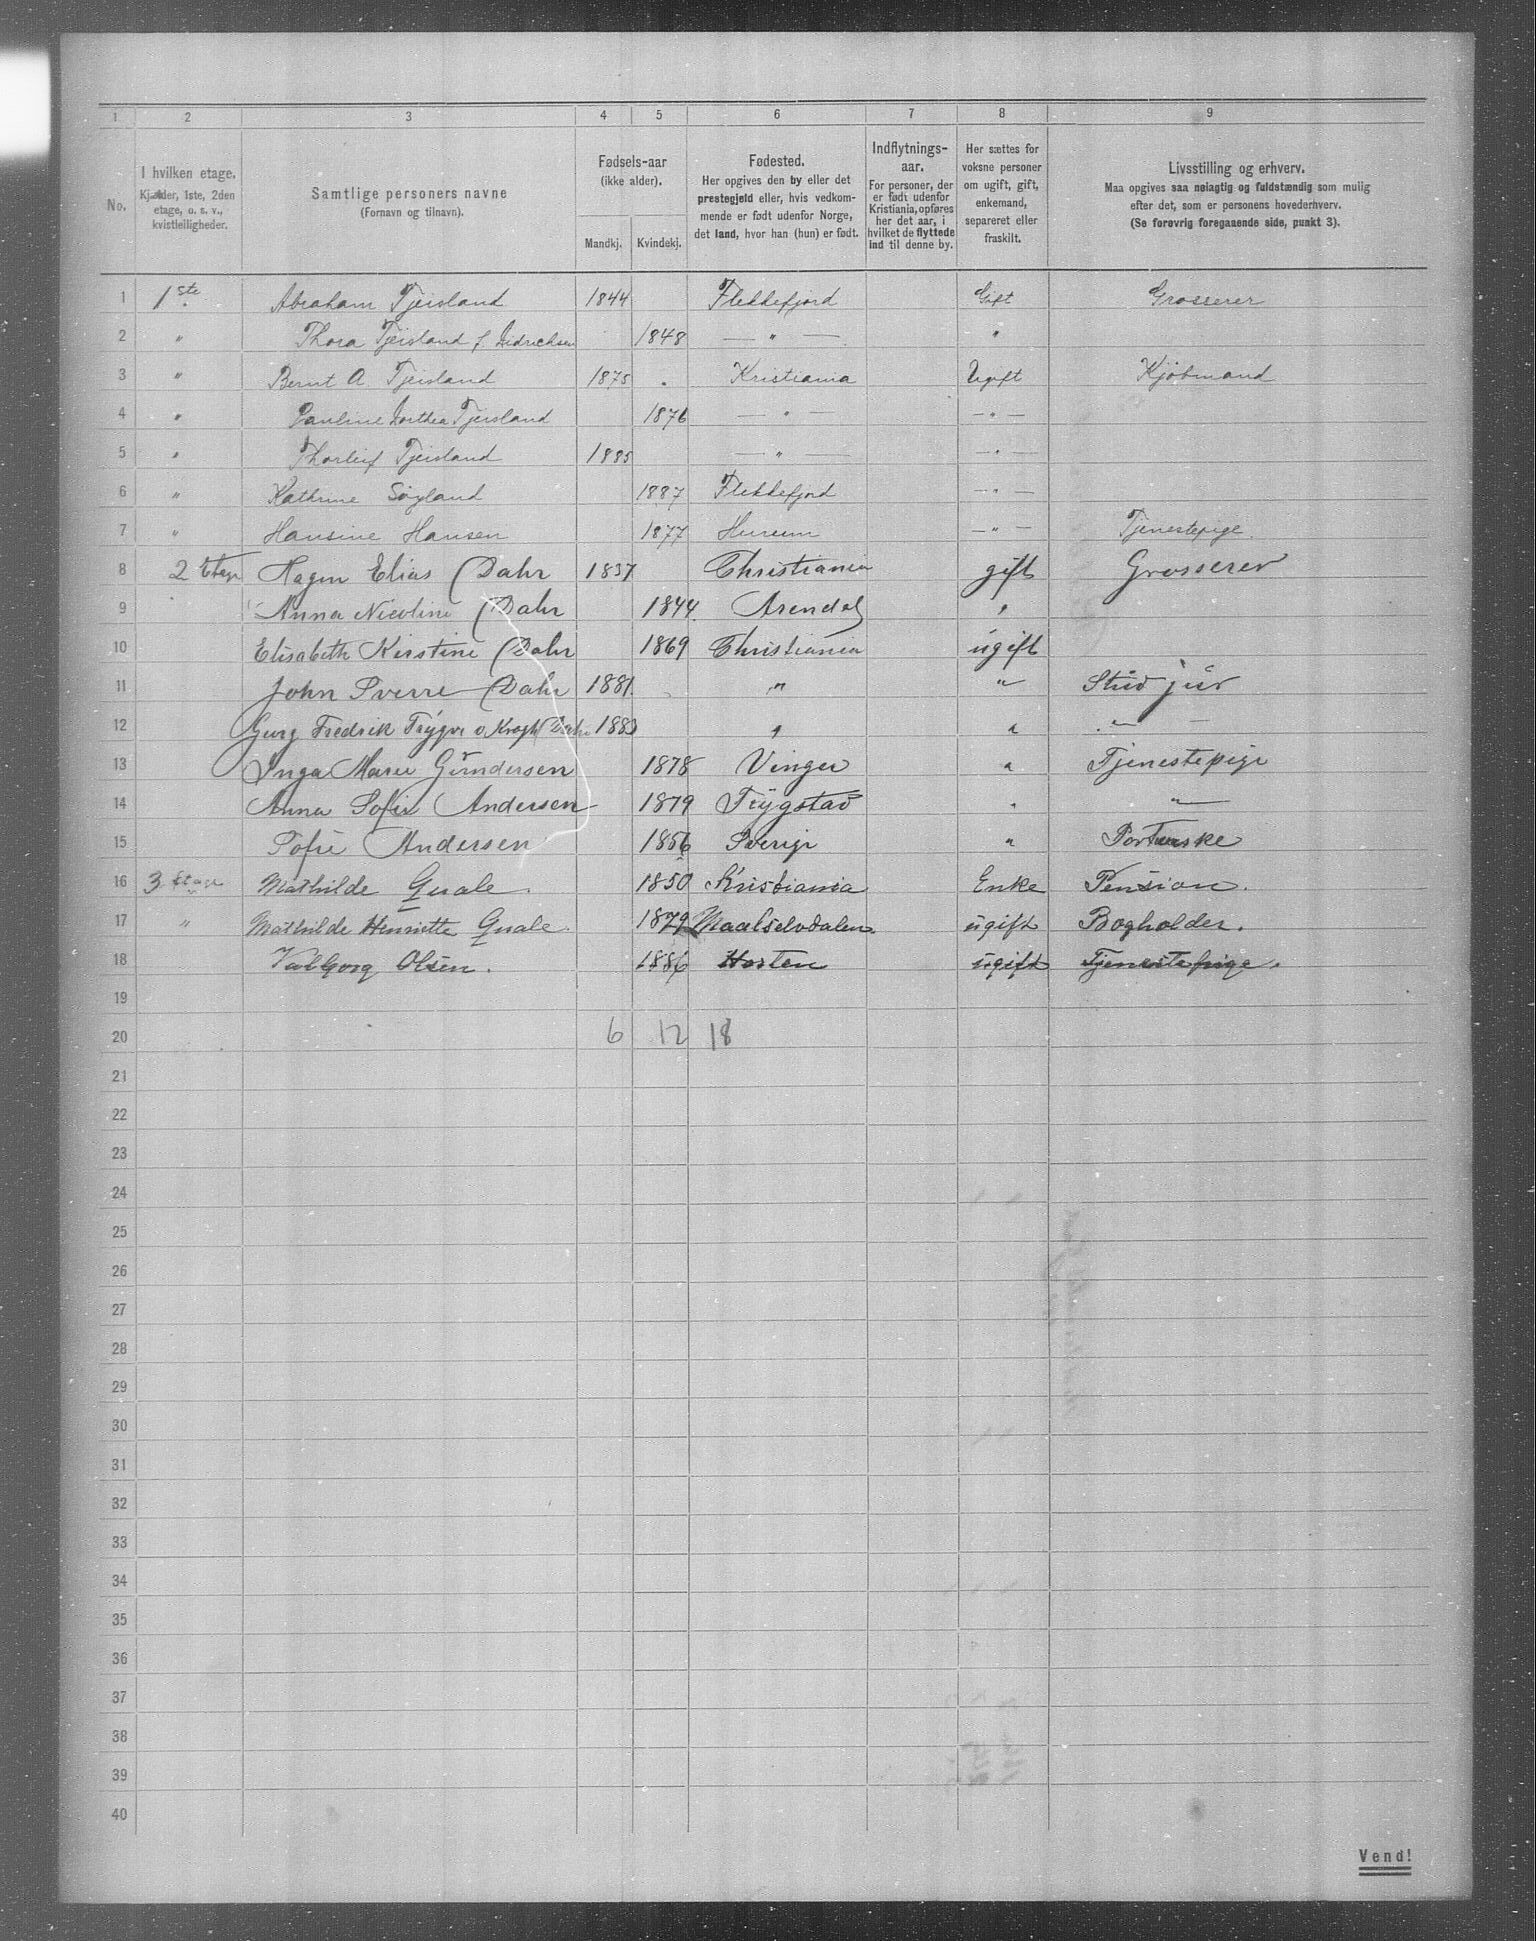 1 2 3 4 5 6 7 8 9
No.
I hvilken etage.
Kjælder, 1ste, 2den
etage, o. s. v.,
kvistleiligheder.
Samtlige personers navne
(Fornavn og tilnavn).
Fødsels-aar
(ikke alder).
Mandkj. Kvindekj.
Fødested.
Her opgives den by eller det
prestegjeld eller, hvis vedkom-
mende er født udenfor Norge,
det land, hvor han (hun) er født.
Indflytnings-
aar.
For personer, der
er født udenfor
Kristiania, opføres
her det aar, i
hvilket de flyttede
ind til denne by.
Her sættes for
voksne personer
om ugift, gift,
enkemand,
separeret eller
fraskilt.
Livsstilling og erhverv.
Maa opgives saa nøiagtig og fuldstændig som mulig
efter det, som er personens hovederhverv.
(Se forøvrig foregaaende side, punkt 3).
1 1ste Abraham Tjeisland 1844 Flekkefjord Gift Grosserer
2 " Thora Tjeisland f. Didrichsen 1848 — " — "
3 " Bernt A. Tjeisland 1875 Kristiania Ugift Kjøbmand
4 " Pauline Dorthea Tjeisland 1876 — " — — " —
5 " Thorleif Tjeisland 1885 — " — " —
6 " Kathrine Søyland 1887 Flekkefjord — " —
7 " Hansine Hansen 1877 Hurum — " — Tjenestepige.
8 2 Etage Elias Dahr 1837 Christiania gift Grosserer
9 Anna Nicoline Dahr 1844. Arendal "
10 Elisabeth Kirstine Dahr 1869 Christiania ugift
11 John Sverre Dahr 1881. " " Stud jur
12 Georg Fredrik Trygve v. Krogh Dahr 1883 " " " —
13 Inga Marie Gundersen 1878 Vinger " Tjenestepige
14 Anna Sofie Andersen 1879 Trygstad " "
15 Sofie Andersen 1856 Sverige "
16 3 Etage Mathilde Quale. 1850 Kristiania Enke Pension.
17 " Mathilde Henriette Quale. 1879 Maalselvdalen. ugift Bogholder.
18 Valborg Olsen. 1886 Horten ugift Tjenestepige.
19
20 6 12 18
21
22
23
24
25
26
27
28
29
30
31
32
33
34
35
36
37
38
39
40
Vend!